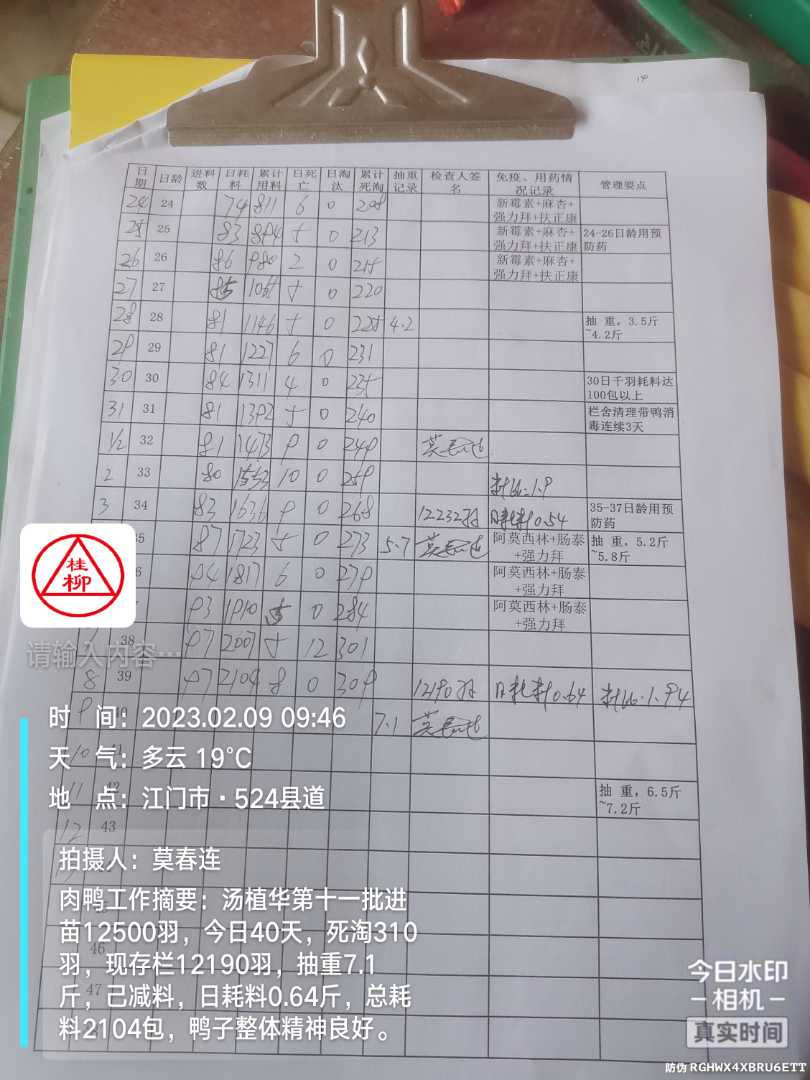 日期 日龄 进料数 日耗料 累计用料 日死亡 日淘汰 累计死淘 抽重记录 检查人签名 免疫、用药情况记录 管理要点
24 24 74 811 6 0 208 新霉素+麻杏+强力拜+扶正康
25 25 83 894 5 0 213 新霉素+麻杏+强力拜+扶正康 24-26日龄用预防药
26 26 86 980 2 0 215 新霉素+麻杏+强力拜+扶正康
27 27 85 1065 5 0 220
28 28 81 1146 5 0 225 4.2 抽 重，3.5斤~4.2斤
29 29 81 1227 6 0 231
30 30 84 1311 4 0 235 30日千羽耗料达100包以上
31 31 81 1392 5 0 240 栏舍清理带鸭消毒连续3天
1/2 32 81 1473 9 0 249 莫春连
2 33 80 1553 10 0 259 料比:1.9
3 34 83 1636 9 0 268 12232羽 日耗料0.54 35-37日龄用预防药
35 87 1723 5 0 273 5.7 莫春连 阿莫西林+肠泰+强力拜 抽 重，5.2斤~5.8斤
94 1817 6 0 279 阿莫西林+肠泰+强力拜
93 1910 5 0 284 阿莫西林+肠泰+强力拜
38 97 2007 5 12 301
8 39 97 2104 8 0 309 12190羽 日耗料0.64 料比:1.94
9 7.1 莫春连
10
11 42 抽 重，6.5斤~7.2斤
12 43
46
47
桂柳
请输入内容…
时 间：2023.02.09 09:46
天 气：多云 19℃
地 点：江门市·524县道
拍摄人：莫春连
肉鸭工作摘要：汤植华第十一批进
苗12500羽，今日40天，死淘310
羽，现存栏12190羽，抽重7.1
斤，己减料，日耗料0.64斤，总耗
料2104包，鸭子整体精神良好。
今日水印
-相机-
真实时间
防伪 RGHWX4XBRU6ETT